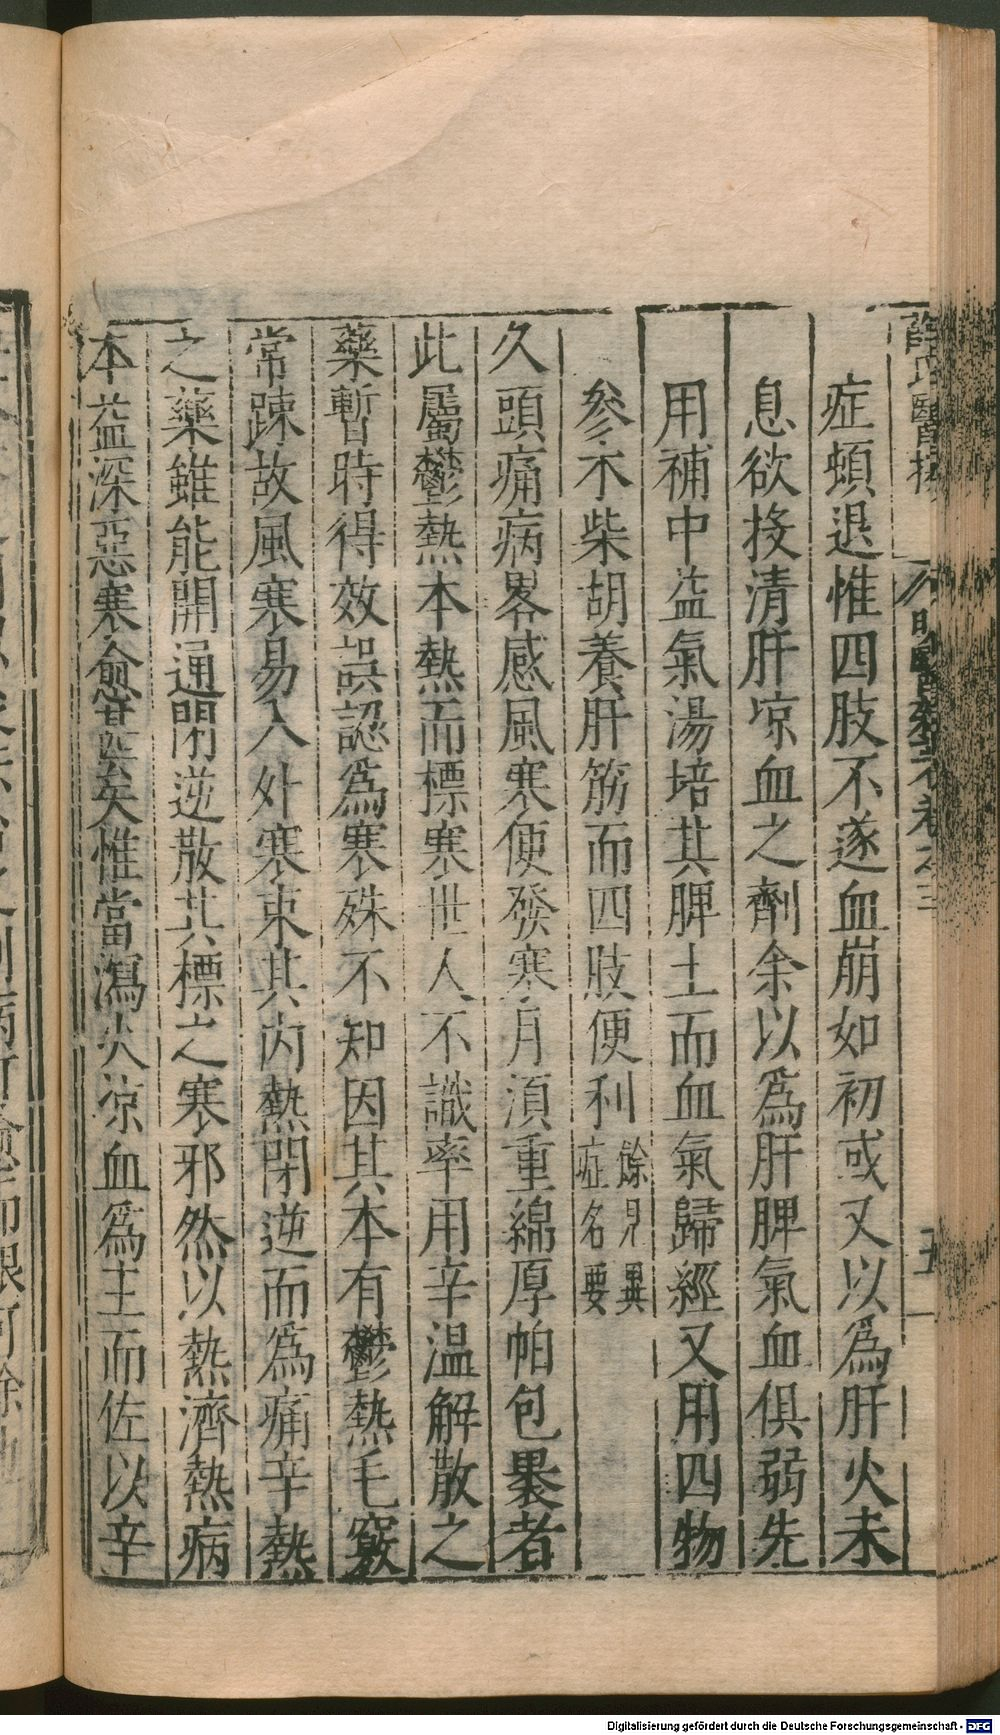 薛氏醫按
明醫雜著卷之三
五
症頓退惟四肢不遂血崩如初或又以為肝火未
息欲投清肝凉血之劑余以為肝脾氣血俱弱先
用補中益氣湯培其脾土而血氣歸經又用四物
參朮柴胡養肝筋而四肢便利餘見異
症名要
久頭痛病畧感風寒便發寒月湏重綿厚帕包褁者
此屬鬱熱本熱而標寒世人不識率用辛温解散之
藥暫時得效誤認為寒殊不知因其本有鬱熱毛竅
常踈故風寒易入外寒束其內熱閉逆而為痛辛熱
之藥雖能開通閉逆散其標之寒邪然以熱濟熱病
本益深惡寒愈甚矣惟當瀉火凉血為主而佐以辛
Digitalisierung gefördert durch die Deutsche Forschungsgemeinschaft - DFG